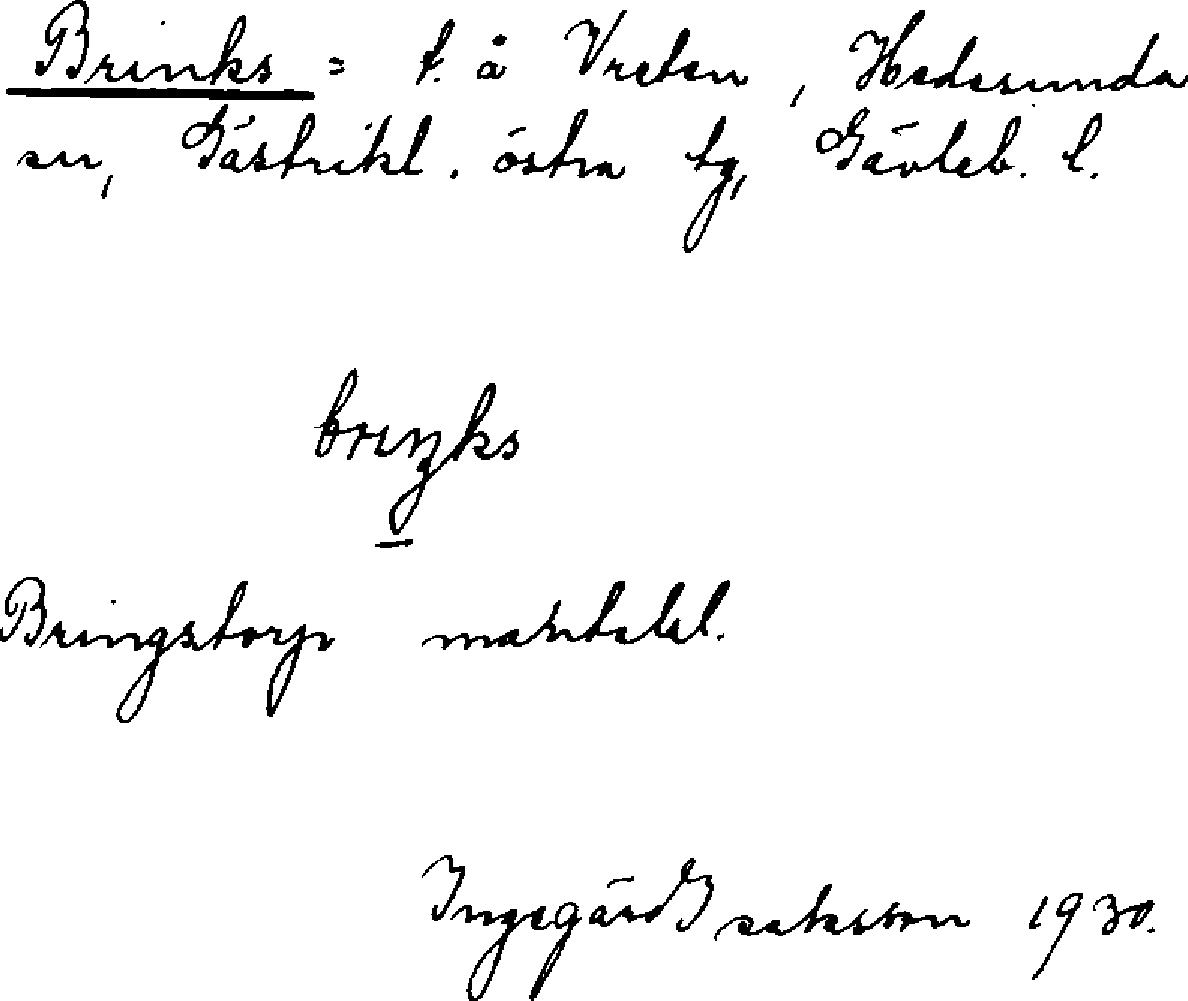 Brinks = t. å Vreten, Hedesunda
sn, Gästrikl. östra tg, Gävleb. l.
briŋks
Bringstorp mantalsl.
Ingegärd Isaksson 1930.